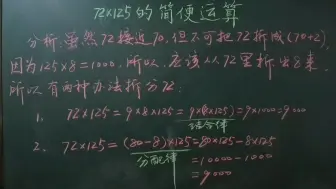 72×125的简便运算
分析:虽然72接近70,但不可把72拆成(70+2),
因为125×8=1000,所以,应该从72里拆出8来.
所以有两种办法拆分72:
1. 72×125=9×8×125=9×(8×125)=9×1000=9000
结合律
2. 72×125=(80-8)×125=80×125-8×125
分配律
=10000-1000
=9000